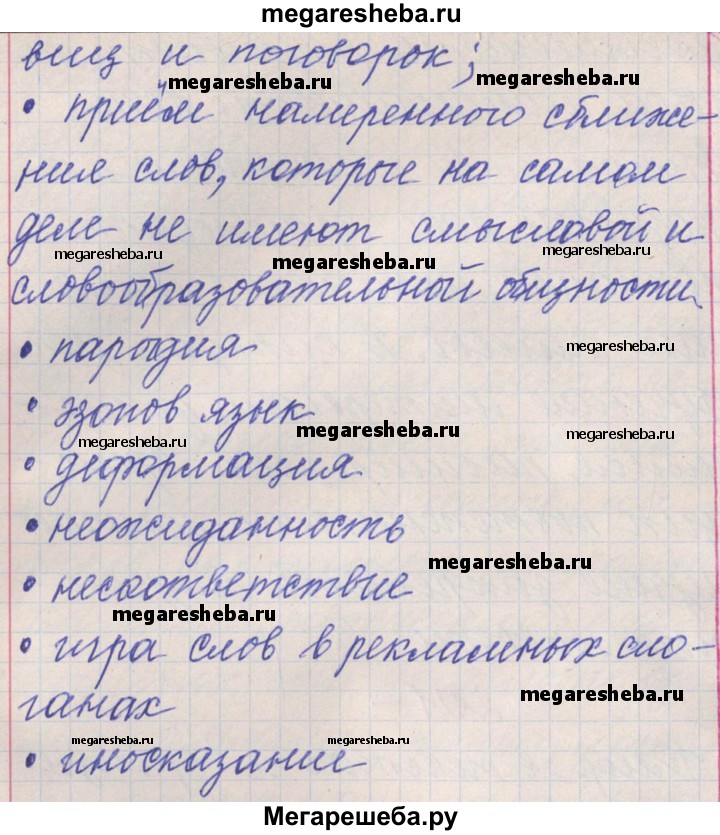 megaresheba.ru
виц и поговорок;
megaresheba.ru megaresheba.ru
• приём намеренного сближе-
ния слов, которые на самом
деле не имеют смысловой и
megaresheba.ru megaresheba.ru megaresheba.ru
словообразовательный общности
• пародия
megaresheba.ru
• эзопов язык
megaresheba.ru megaresheba.ru megaresheba.ru
• деформация
• неожиданность
megaresheba.ru
• несоответствие
megaresheba.ru
• игра слов в рекламных сло-
megaresheba.ru
ганах
megaresheba.ru megaresheba.ru
• иносказание
Мегарешеба.ру